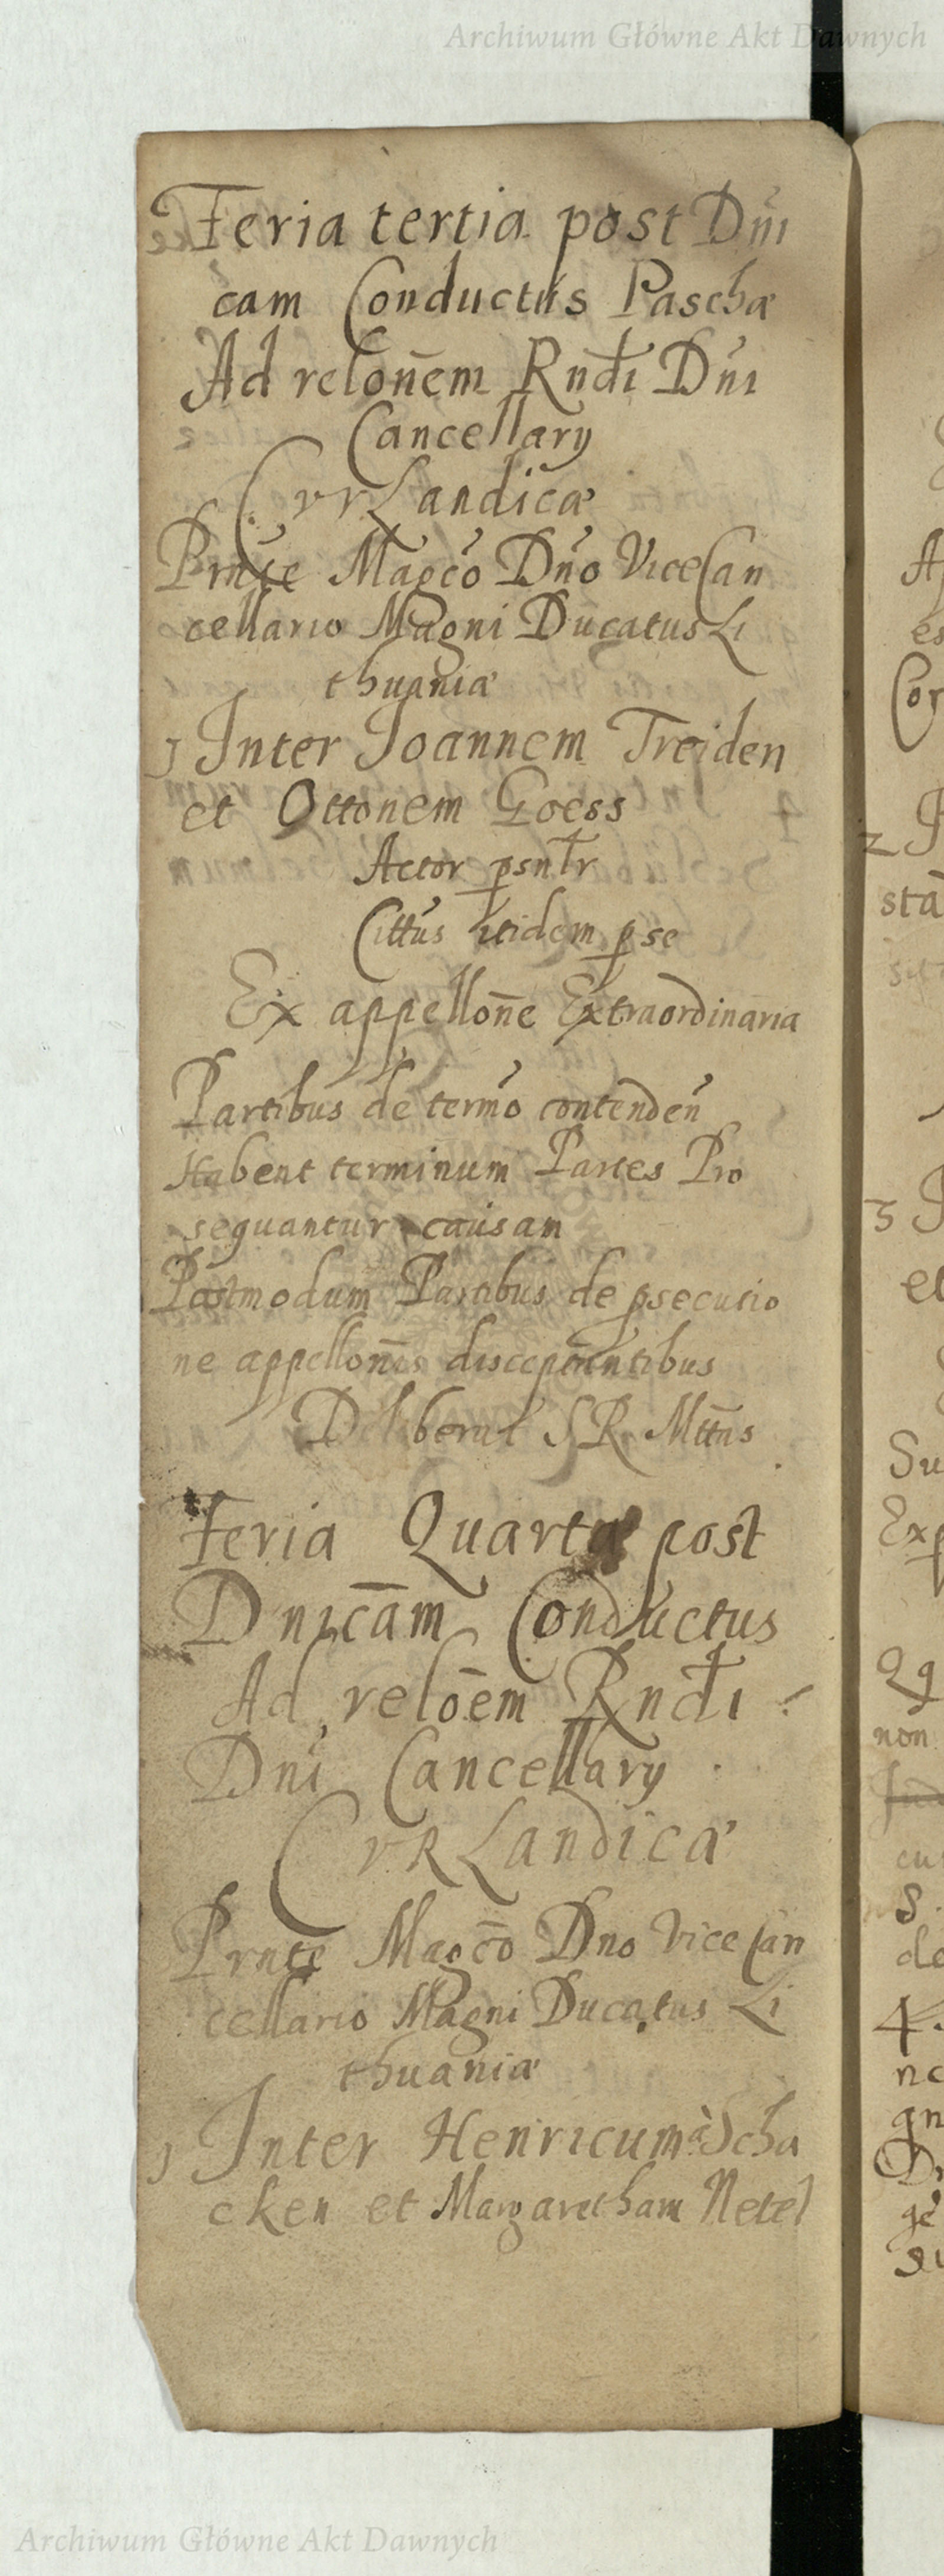 Archiwum Główne Akt Dawnych
Feria tertia post Dn̄i
cam Conductus Paschæ
Ad relon̄em Rndi Dni
Cancellary
CvrLandicæ
Prnte Magco Dno ViceCan
cellario Magni Ducatus Li
thuaniæ
1 Inter Joannem Treiden
et Ottonem Goess
Actor psntr
Cittus itidem p se
Ex appellon̄e Extraordinaria
Partibus de termo contenden
Habent terminum Partes Pro
sequantur causam
Postmodum Partibus de psecutio
ne appellonis disceptantibus
Deliberat S R Mttas
Feria Quarta post
Dnicam Conductus
Ad relōem Rndi
Dni Cancellary
CvRLandicæ
Prnte Magco Dno Vice Can
cellario Magni Ducatus Li
thuaniæ
1 Inter Henricum à Scha
cken et Margaretham Netel
Archiwum Główne Akt Dawnych